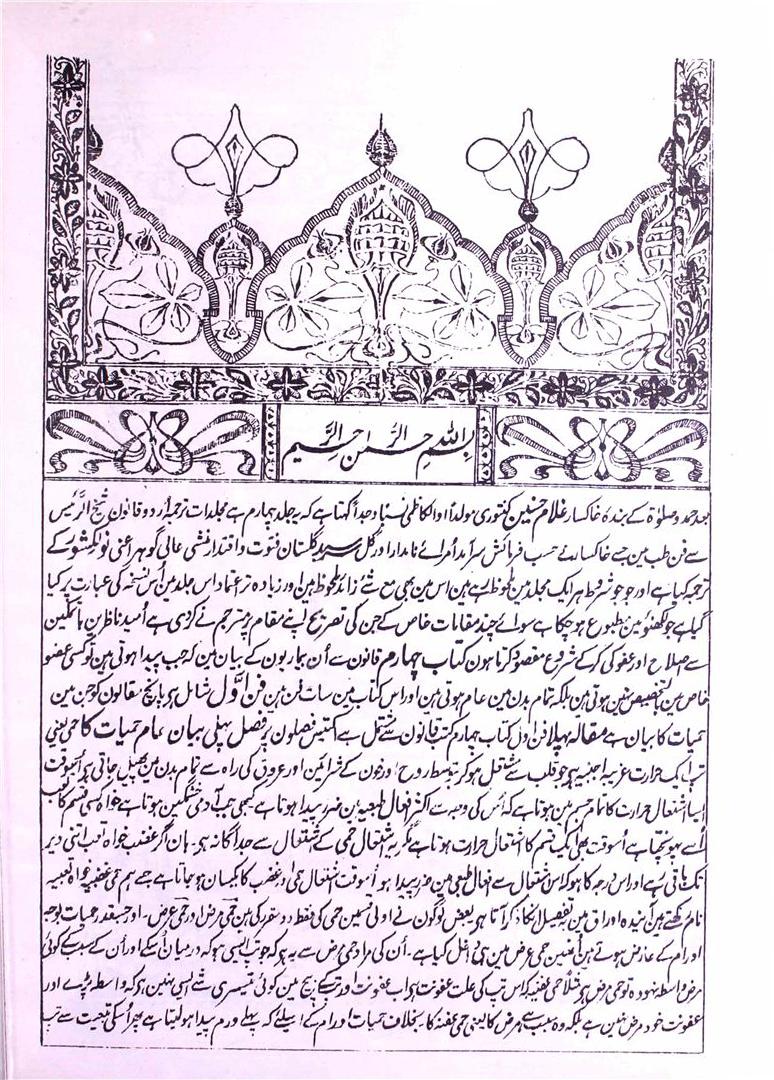 بسم الله الرحمن الرحیم
بعد حمد و صلوٰۃ کے بندہ خاکسار غلام حسنین کنتوری مولداً والکاظمی نسباً و جداً کہتا ہے کہ یہ جلد چہارم ہے مجلدات ترجمہ اردو قانون شیخ الرئیس
سے فن طب مین جسے خاکسار نے حسب فرمائش سرآمد امرائے نامدار اور گل سرسبد گلستان فتوت و اقتدار منشی عالی گوہر اعنی نولکشور کے
ترجمہ کیا ہے اور جو جو شروط ہر ایک مجلد مین ملحوظ رہے ہین اس مین بھی مع شے زائد ملحوظ ہین اور زیادہ تر اعتماد اس جلد مین اُس نسخہ کی عبارت پر کیا
گیا ہے جو لکھنؤ مین مطبوع ہو چکا ہے سوائے چند مقامات خاص کے جن کی تصریح اپنے مقام پر مترجم نے کر دی ہے اُمید ناظرین با تمکین
سے اصلاح اور عفو کی کر کے شروع مقصود کرتا ہون کتاب چہارم قانون سے اُن بیماریون کے بیان مین کہ جب پیدا ہوتی ہین تو کسی عضو
خاص مین بالتخصیص نہین ہوتی ہین بلکہ تمام بدن مین عام ہوتی ہین اور اس کتاب مین سات فن ہین فن اوّل شامل ہو پانچ مقالون کو جن مین
حمیات کا بیان ہے مقالہ پہلا فن اول کتاب چہارم کتب قانون سے مشتمل ہے اکتیس فصلون پر فصل پہلی بیان عام حمیات کا حمی یعنی
تپ ایک حرارت غریبہ اجنبیہ ہے جو قلب سے مشتعل ہو کر بتوسط روح اور خون کے شرائین اور عروق کی راہ سے تمام بدن مین پھیل جاتی ہے اُسوقت
ایسا اشتعال حرارت کا تمام جسم مین ہوتا ہے کہ اُس کی وجہ سے اکثر افعال طبعیہ مین ضرر پیدا ہوتا ہے کبھی جب آدمی خشمگین ہوتا ہے خواہ کسی قسم کا تعب
اُسے پہونچتا ہے اُسوقت بھی ایک قسم کا اشتعال حرارت ہوتا ہے مگر یہ اشتعال حمی کے اشتعال سے جداگانہ ہی۔ ہان اگر غضب خواہ تعب اتنی دیر
تک باقی رہے اور اس درجہ کا ہو کہ اس اشتعال سے افعال طبعی مین ضرر پیدا ہو اُسوقت اشتعال حمی اور غضب کا یکسان ہو جاتا ہے جسے ہم حمی غضبیہ خواہ تعبیہ
نام رکھتے ہین آیندہ اوراق مین بتفصیل انکا ذکر آتا ہی بعض لوگون نے اولی تقسیمین حمی کی فقط دو مقرر کی ہین حمی مرض اور حمی عرض۔ اور جسقدر حمیات بوجہ
اورام کے عارض ہوتے ہین اُنھین حمی عرض مین داخل کیا ہے۔ اُن کی مراد حمی مرض سے یہ ہو کہ جو تپ ایسی ہو کہ درمیان اُسکے اور اُن کے سبب کے کوئی
مرض واسطہ نہو وہ تو حمی مرض ہو مثلاً حمی عفنیہ کہ اس تپ کی علت عفونت ہو اب عفونت اور تپ کے بیچ مین کوئی تیسری شے ایسی نہین ہو کہ واسطہ پڑے اور
عفونت خود مرض نہین ہے بلکہ وہ سبب ہے مرض کا یعنی حمی عفنہ کا بخلاف حمیات اورام کے اسلیئے کہ پہلے ورم پیدا ہو لیتا ہے پھر اُسکی تبعیت سے تپ